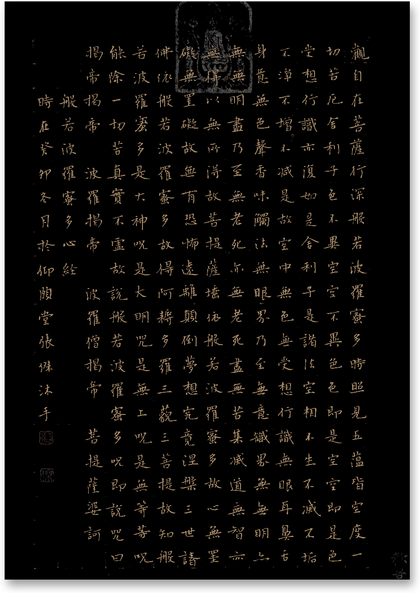 觀自在菩薩行深般若波羅蜜多時照見五蘊皆空度一
切苦厄舍利子色不異空空不異色色即是空空即是色
受想行識亦復如是舍利子是諸法空相不生不滅不垢
不淨不增不減是故空中無色無受想行識無眼耳鼻舌
身意無色聲香味觸法無眼界乃至無意識界無無明亦
無無明盡乃至無老死亦無老死盡無苦集滅道無智亦
無得以無所得故菩提薩埵依般若波羅蜜多故心無罣
礙無罣礙故無有恐怖遠離顛倒夢想究竟涅槃三世諸
佛依般若波羅蜜多故得阿耨多羅三藐三菩提故知般
若波羅蜜多是大神呪是大明呪是無上呪是無等等呪
能除一切苦真實不虛故說般若波羅蜜多呪即說呪曰
揭帝揭帝 波羅揭帝 波羅僧揭帝 菩提薩婆訶
般若波羅蜜多心經
時在癸卯冬月於仰頤堂張沐手